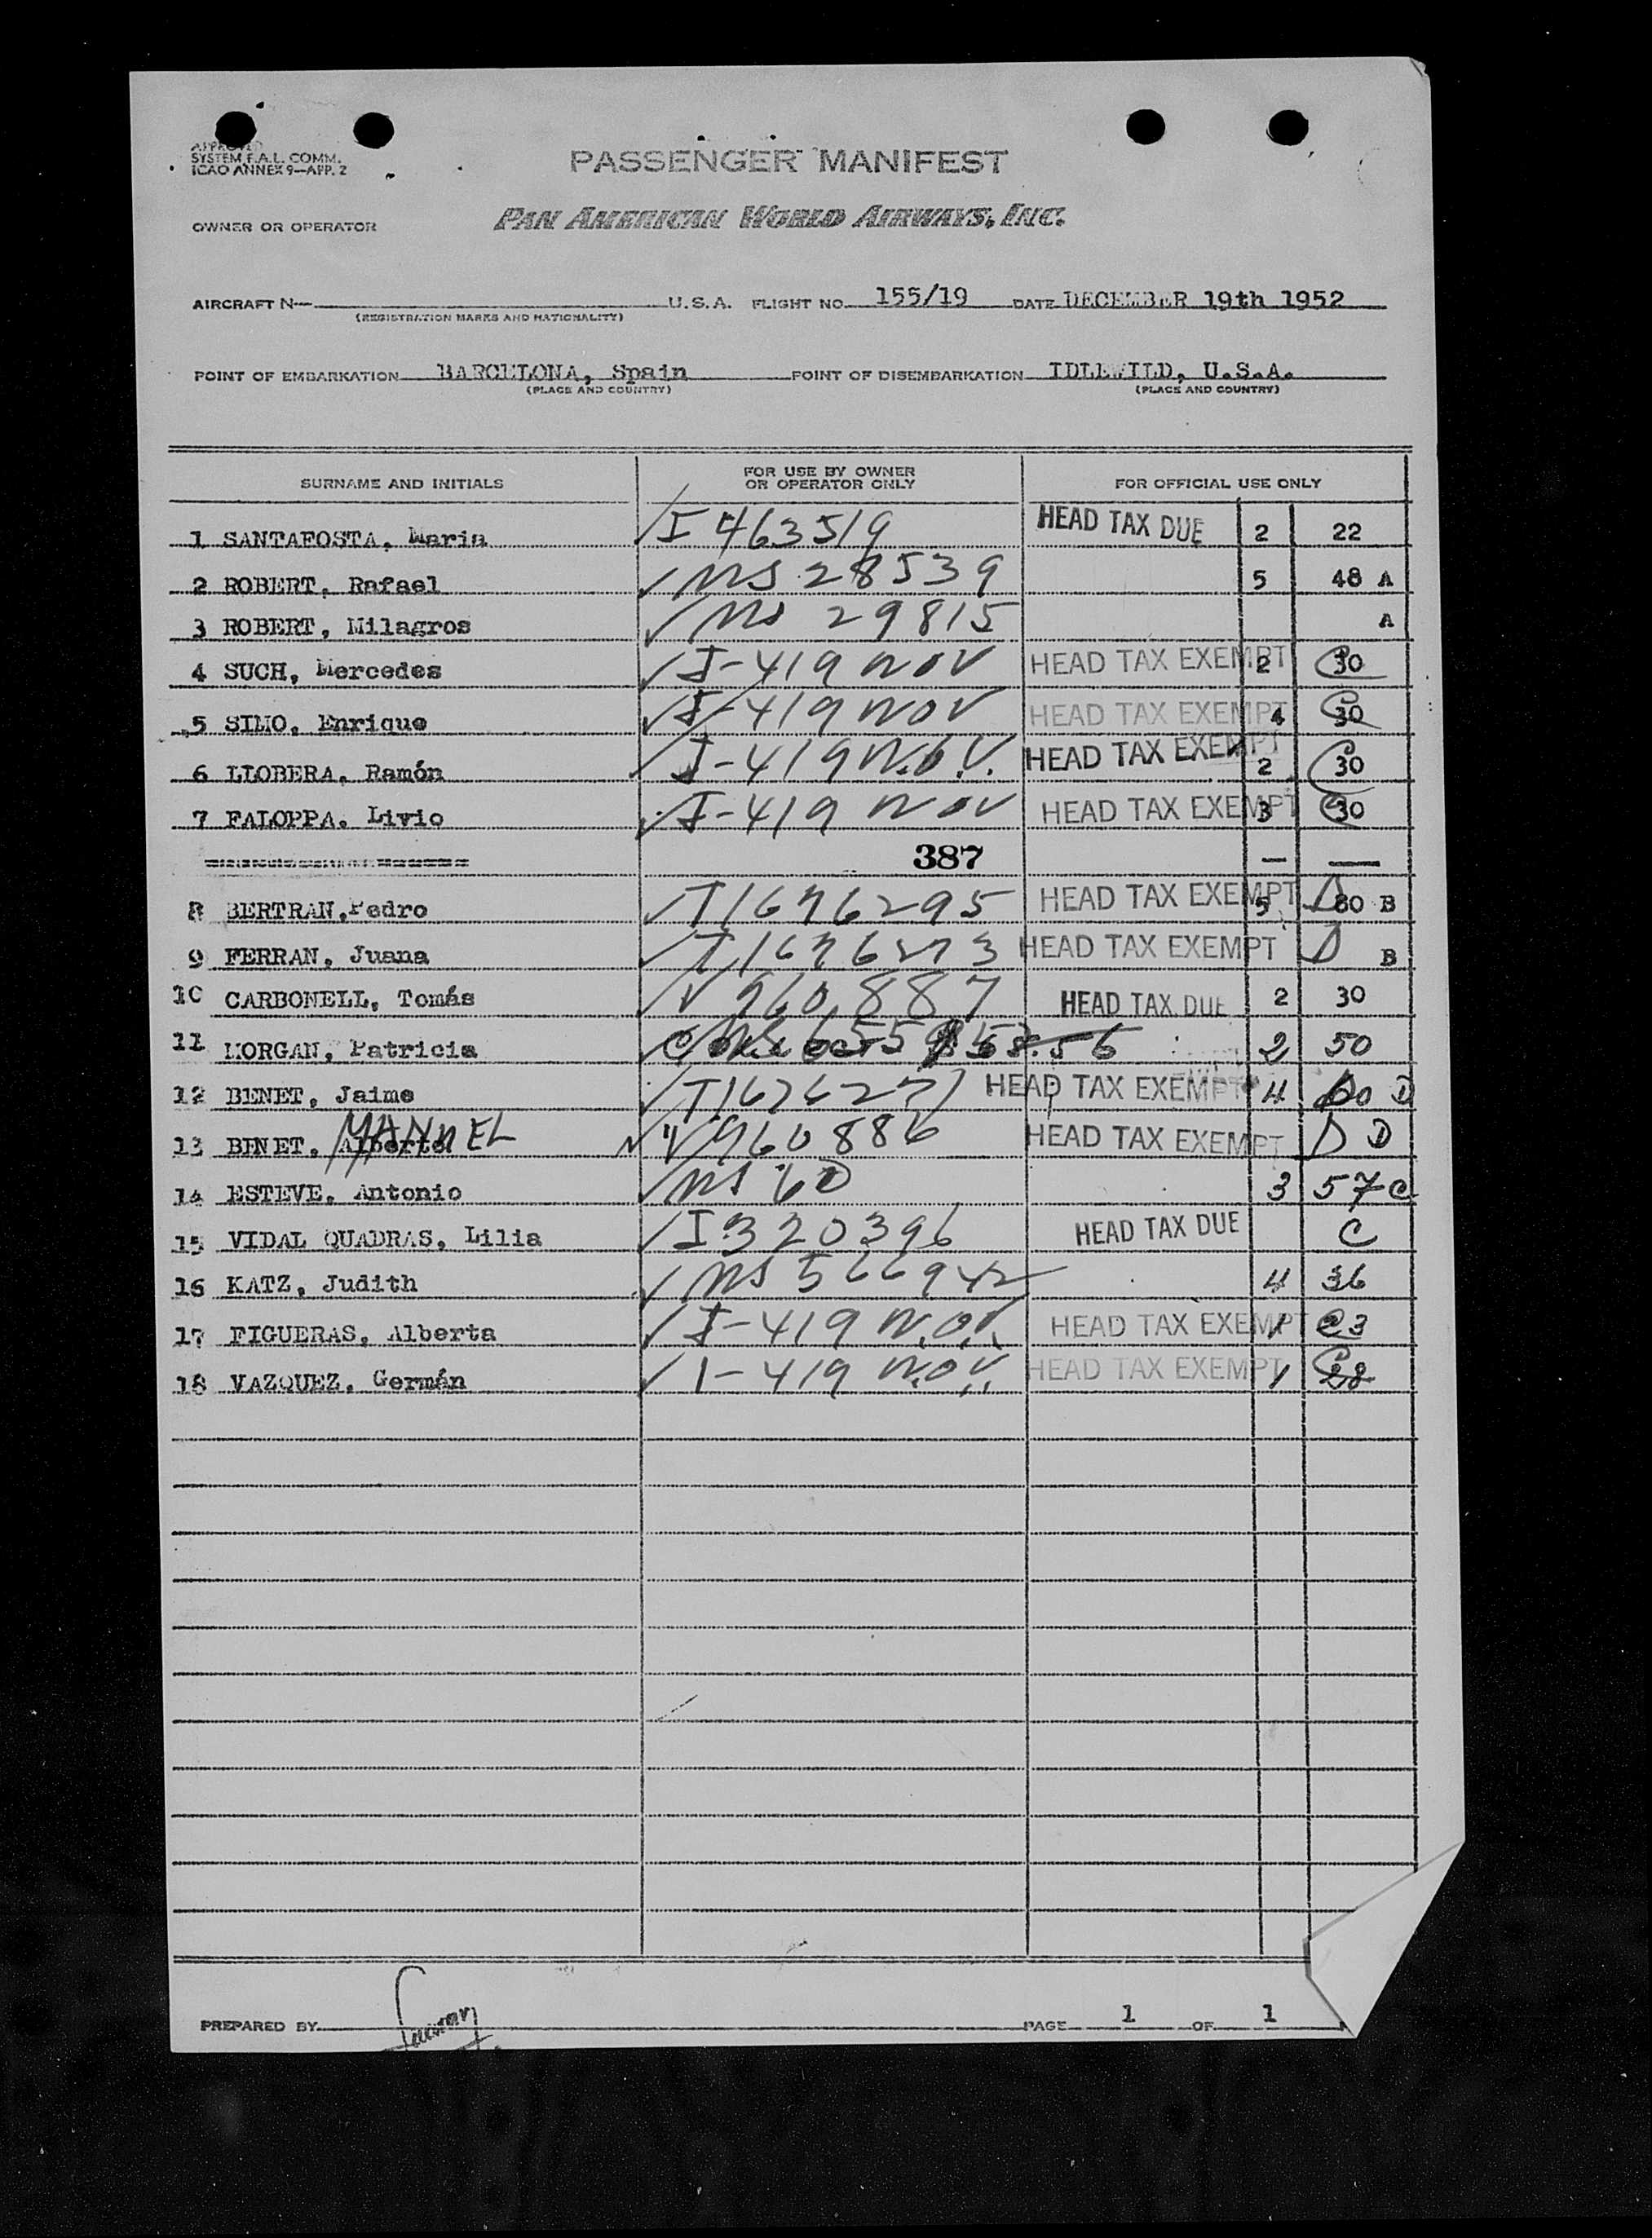 APPROVED
SYSTEM F.A.L. COMM.
ICAO ANNEX 9—APP. 2
PASSENGER MANIFEST
OWNER OR OPERATOR PAN AMERICAN WORLD AIRWAYS, INC.
AIRCRAFT N— U.S.A. FLIGHT NO. 155/19 DATE DECEMBER 19th 1952
(REGISTRATION MARKS AND NATIONALITY)
POINT OF EMBARKATION BARCELONA, Spain POINT OF DISEMBARKATION IDLEWILD, U.S.A.
(PLACE AND COUNTRY) (PLACE AND COUNTRY)
SURNAME AND INITIALS FOR USE BY OWNER OR OPERATOR ONLY FOR OFFICIAL USE ONLY
1 SANTAEOSTA, Maria I 463519 HEAD TAX DUE 2 22
2 ROBERT, Rafael NS 28539 5 48 A
3 ROBERT, Milagros NS 29815 A
4 SUCH, Mercedes I-419 NOV HEAD TAX EXEMPT 2 C 30
5 SIMO, Enrique I-419 NOV HEAD TAX EXEMPT 4 C 30
6 LLOBERA, Ramón I-419 N.O.V. HEAD TAX EXEMPT 2 C 30
7 FALOPPA, Livio I-419 NOV HEAD TAX EXEMPT 3 C 30
387 — —
8 BERTRAN, Pedro T1676295 HEAD TAX EXEMPT 5 D 80 B
9 FERRAN, Juana T1676273 HEAD TAX EXEMPT D B
10 CARBONELL, Tomás V 960887 HEAD TAX DUE 2 30
11 MORGAN, Patricia 2 50
12 BENET, Jaime T1676271 HEAD TAX EXEMPT 4 D
13 BENET, Alberto MANUEL V960886 HEAD TAX EXEMPT D D
14 ESTEVE, Antonio NS 60 3 57 C
15 VIDAL QUADRAS, Lilia I 320396 HEAD TAX DUE C
16 KATZ, Judith NS 566942 4 36
17 FIGUERAS, Alberta I-419 N.O.V. HEAD TAX EXEMPT 1 C 3
18 VAZQUEZ, Germán I-419 N.O.V. HEAD TAX EXEMPT 1 C 28
PREPARED BY PAGE 1 OF 1